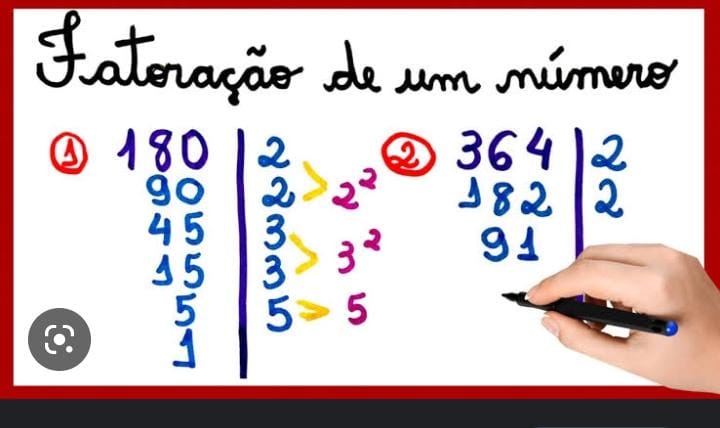 Fatoração de um número
① 180 | 2
90 | 2 > 2²
45 | 3
15 | 3 > 3²
5 | 5 > 5
1
② 364 | 2
182 | 2
91